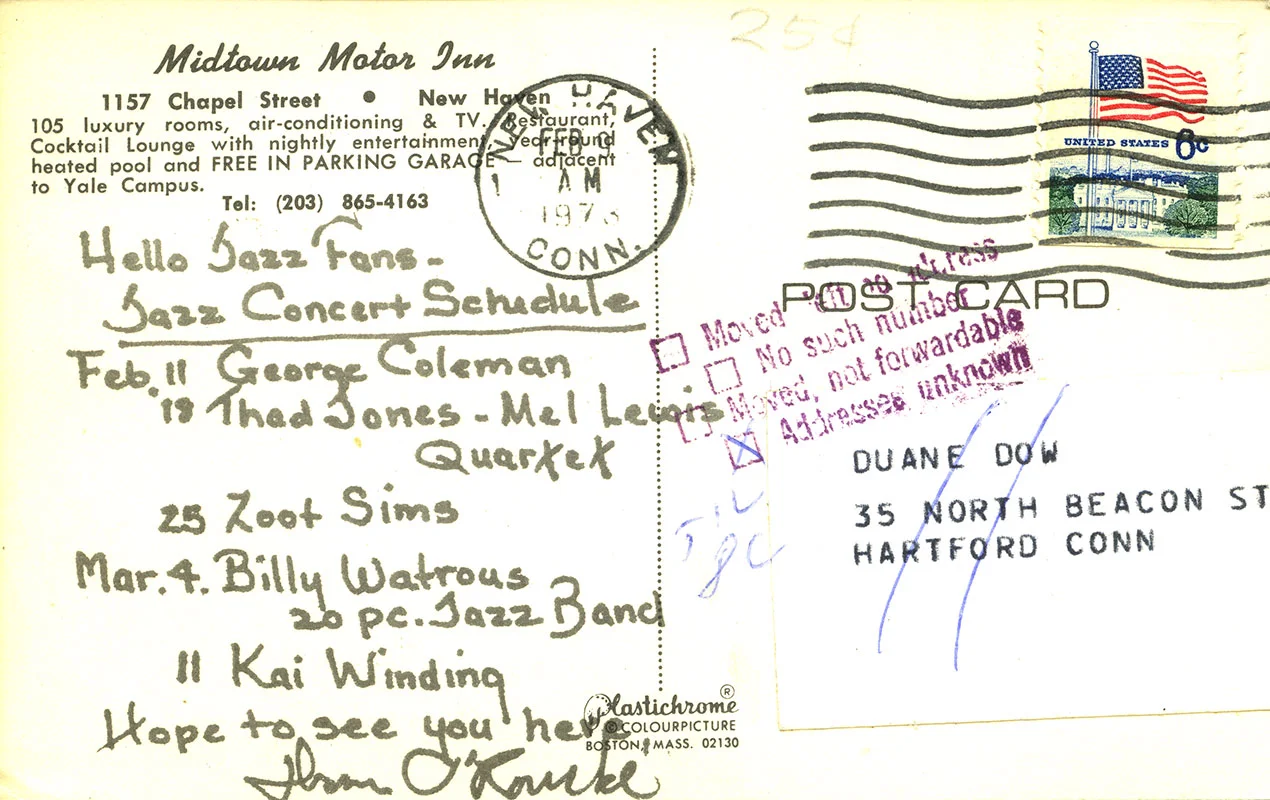 25¢
Midtown Motor Inn
1157 Chapel Street • New Haven
105 luxury rooms, air-conditioning & TV. Restaurant,
Cocktail Lounge with nightly entertainment, year-round
heated pool and FREE IN PARKING GARAGE adjacent
to Yale Campus.
Tel: (203) 865-4163
Hello Jazz Fans-
Jazz Concert Schedule
Feb. 11 George Coleman
18 Thad Jones - Mel Lewis
Quartet
25 Zoot Sims
Mar. 4. Billy Watrous
20 pc. Jazz Band
11 Kai Winding
Hope to see you here,
O'Rourke
NEW HAVEN
FEB
AM
CONN.
UNITED STATES 8c
POST CARD
Moved, left no address
No such number
Moved, not forwardable
Addressee unknown
DUANE DOW
35 NORTH BEACON ST
HARTFORD CONN
Plastichrome ®
© COLOURPICTURE
BOSTON, MASS. 02130